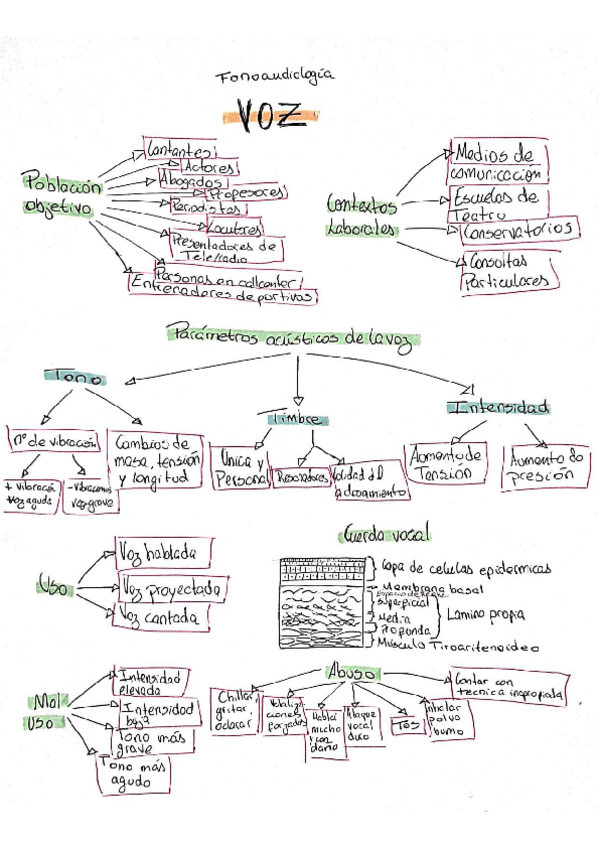 Fonoaudiología
VOZ
Población
objetivo
Cantantes
Actores
Abogados
Profesores
Periodistas
Locutores
Presentadores de
Tele/radio
Personas en callcenter
Entrenadores deportivos
Contextos
Laborales
Medios de
comunicación
Escuelas de
Teatro
Conservatorios
Consultas
Particulares
Parámetros acústicos de la voz
Tono
Timbre
Intensidad
nº de vibración
+ vibración
voz aguda
- vibraciones
voz grave
Cambios de
masa, tensión
y longitud
Unica y
Personal
Resonadores
Calidad del
Aumento de
Tensión
Aumento de
presión
Uso
Voz hablada
Voz proyectada
Voz cantada
Cuerda vocal
Capa de celulas epidermicas
Membrana basal
Superficial
Media
Profunda
Lamina propia
Músculo Tiroaritenoideo
Mal
uso
Intensidad
elevada
Intensidad
baja
Tono más
grave
Tono más
agudo
Abuso
Chillar,
gritar,
Hablar
mucho
y con
daño
Ataque
vocal
duro
Tos
inhalar
polvo
humo
Cantar con
tecnica inapropiada